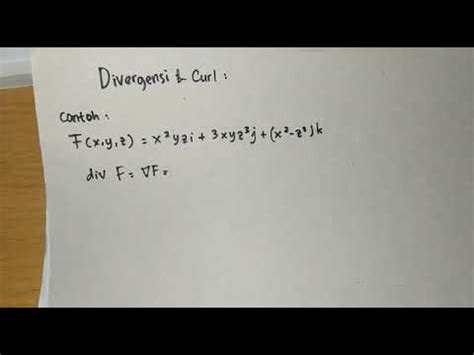 Divergensi & Curl :
Contoh :
F(x,y,z) = x²yzi + 3xyz³j + (x²-z²)k
div F = ∇F =